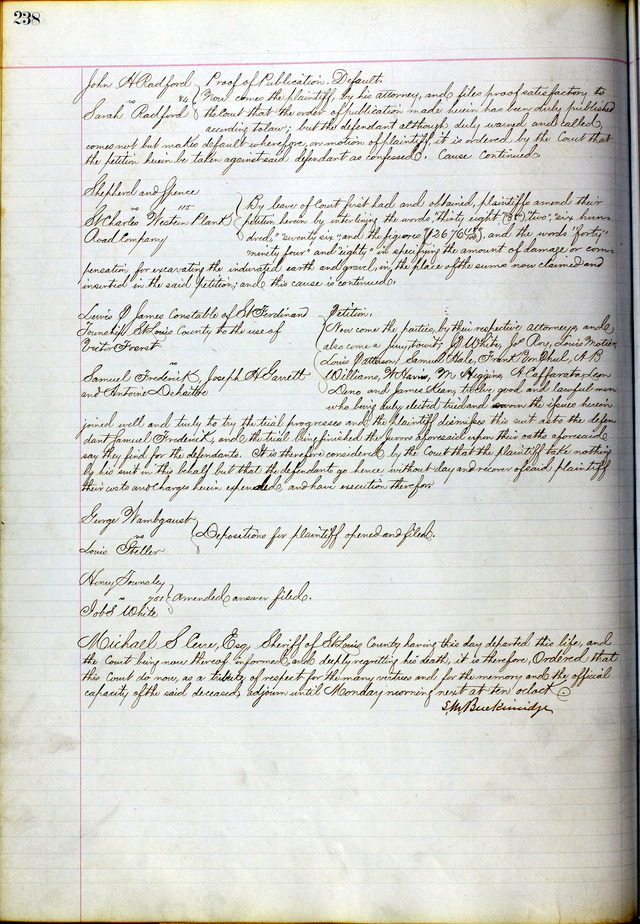 238
John H Radford } Proof of Publication. Default.
vs 84 Now comes the plaintiff, by his attorney, and files proof satisfactory to
Sarah Radford the Court that the order of publication made herein has been duly published
according to law; but the defendant although duly warned and called
comes not but makes default wherefore, on motion of plaintiff, it is ordered by the Court that
the petition herein be taken against said defendant as confessed. Cause Continued.
Shepherd and Spence
vs 115 By leave of Court first had and obtained, plaintiffs amend their
St Charles Western Plank petition herein by interlining the words "thirty eight (38)", "two", "six hun-
Road Company dred," "seventy six" and the figures and the words "forty,"
"ninety four" and "eighty" in specifying the amount of damage or com-
pensation for excavating the indurated earth and gravel, in the place of the sums now claimed and
inserted in the said Petition; and this cause is continued.
Lewis P James Constable of St Ferdinand Petition.
Township St Louis County to the use of Now come the parties, by their respective attorneys, and
Victor also come a jury, towit; White, Jos Roy, Louis Motier,
vs Louis Patterson, Samuel Gale, Frank McPhul, A B
Samuel Frederick, Joseph H Garrett Williams, W Harris, M Higgins, Caffarata, Leon
and Antoine Deno and James Kean, twelve good and lawful men
who being duly elected tried and sworn the issues herein
joined well and truly to try the trial progresses and the plaintiff dismisses this suit as to the defen
dant Samuel Frederick, and the trial being finished the jurors aforesaid upon their oaths aforesaid
say they find for the defendants. It is therefore considered by the Court that the plaintiff take nothing
by his suit in this behalf but that the defendants go hence without day and recover of said plaintiff
their costs and charges herein expended and have execution therefor.
George Wambgaust
vs Depositions for plaintiff opened and filed.
Louis Steller
Henry Townsley
vs 701 } Amended answer filed.
Job S White
Michael S Cerre, Esq, Sheriff of St Louis County having this day departed this life, and
the Court being now thereof informed, and deeply regretting his death, it is therefore, Ordered that
this Court do now, as a tribute of respect for the many virtues and for the memory and the official
capacity of the said deceased, adjourn until Monday morning next at ten oclock.
S. M. Breckinridge